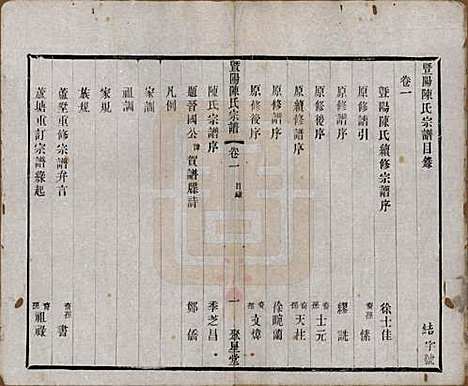 暨陽陳氏宗譜目錄
結字號
卷一
暨陽陳氏續修宗譜序 徐士佳
原修譜引 裔孫愫
原修後序 繆詵
原續修序 裔孫士元
原修譜序 裔孫天柱
原修後序 徐畹蘭
原修後序 裔孫文煒
暨陽陳氏宗譜 卷一 目錄 一 聚星堂
陳氏宗譜序 季芝昌
題晉國公諱賀譜牒詩 鄭僑
凡例
家訓
祖訓
家規
蔟規
蘆墅重修宗譜弁言 裔孫書
蘆塘重訂宗譜緣起 裔孫祖祿